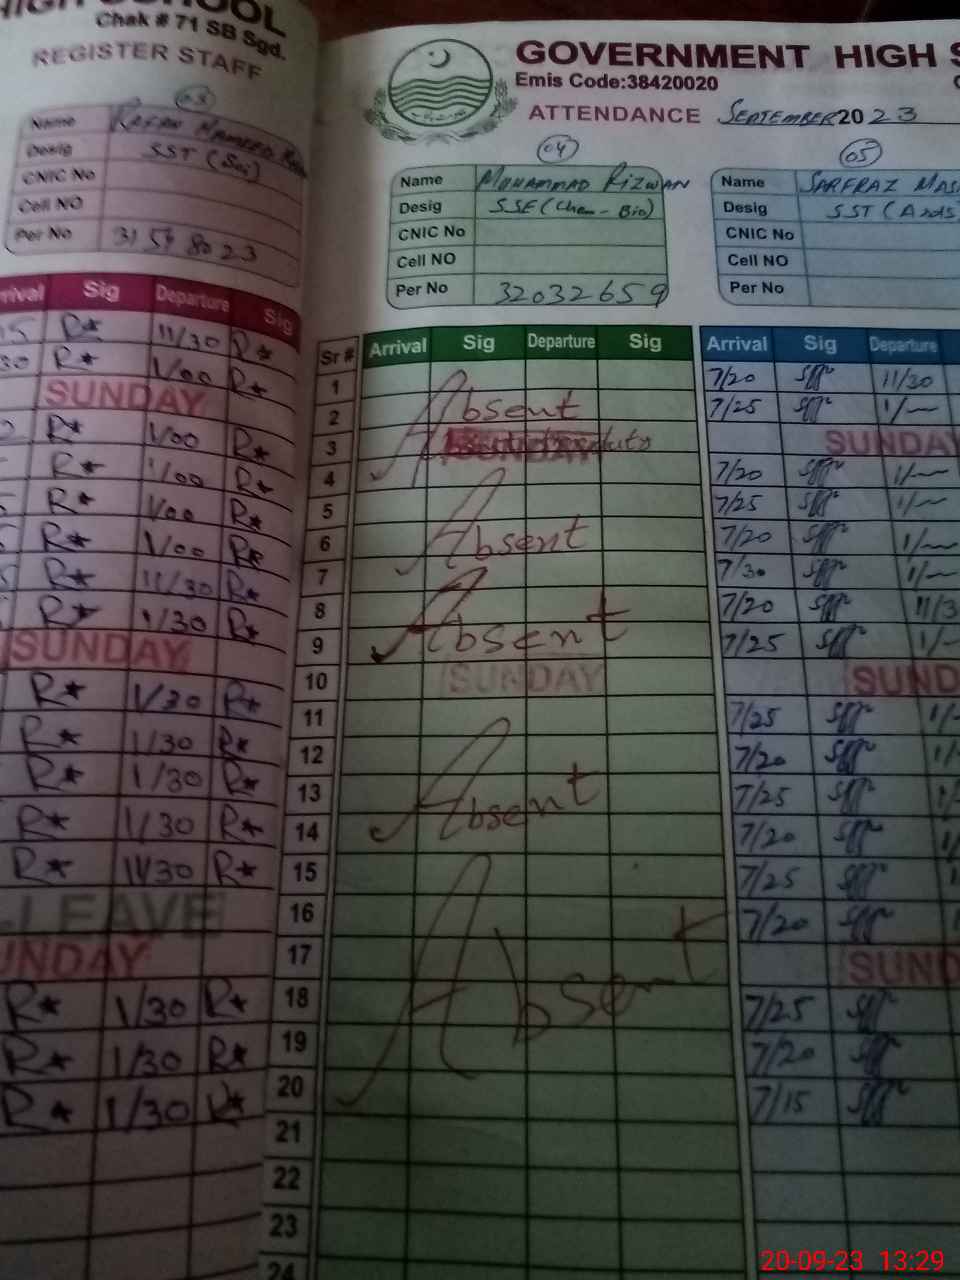 HIGH SCHOOL
Chak # 71 SB Sgd.
REGISTER STAFF
03
Name
Desig SST (Sci)
CNIC No
Cell NO
Per No
rrival Sig Departure Sig
R* 11/30 R*
30 R* 1/00 R*
SUNDAY
R* 1/00 R*
R* 1/00 R*
R* 1/00 R*
R* 1/00 R*
R* 11/30 R*
R* 1/30 R*
SUNDAY
R* 1/30 R*
R* 1/30 R*
R* 1/30 R*
R* 1/30 R*
R* 11/30 R*
LEAVE
UNDAY
R* 1/30 R*
R* 1/30 R*
R* 1/30 R*
GOVERNMENT HIGH S
Emis Code:38420020
ATTENDANCE SEPTEMBER 2023
04
Name MUHAMMAD RIZWAN
Desig SSE (Chem - Bio)
CNIC No
Cell NO
Per No 32032659
Sr # Arrival Sig Departure Sig
1
2 Absent
3 SUNDAY
4
5
6 Absent
7
8
9 Absent
10 SUNDAY
11
12
13
14 Absent
15
16
17
18 Absent
19
20
21
22
23
24
05
Name SARFRAZ MAS
Desig SST (Arts
CNIC No
Cell NO
Per No
Arrival Sig Departure
7/20 11/30
7/25 1/—
SUNDAY
7/20 1/—
7/25 1/—
7/20 1/—
7/30 1/—
7/20 11/3
7/25 1/-
SUND
7/25 1/-
7/20
7/25
7/20
7/25
7/20
SUND
7/25
7/20
7/15
20-09-23 13:29